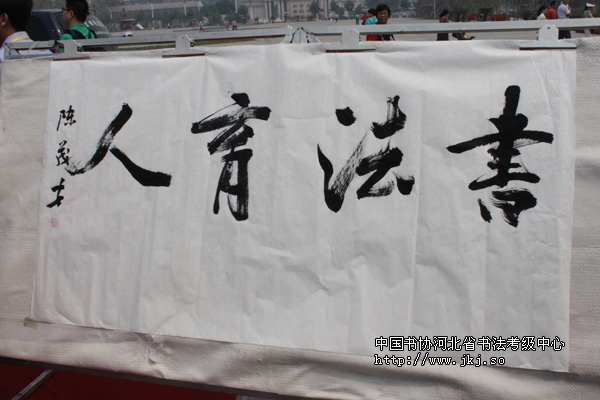 書法育人
陈茂
中国书协河北省书法考级中心
http://www.jkj.so